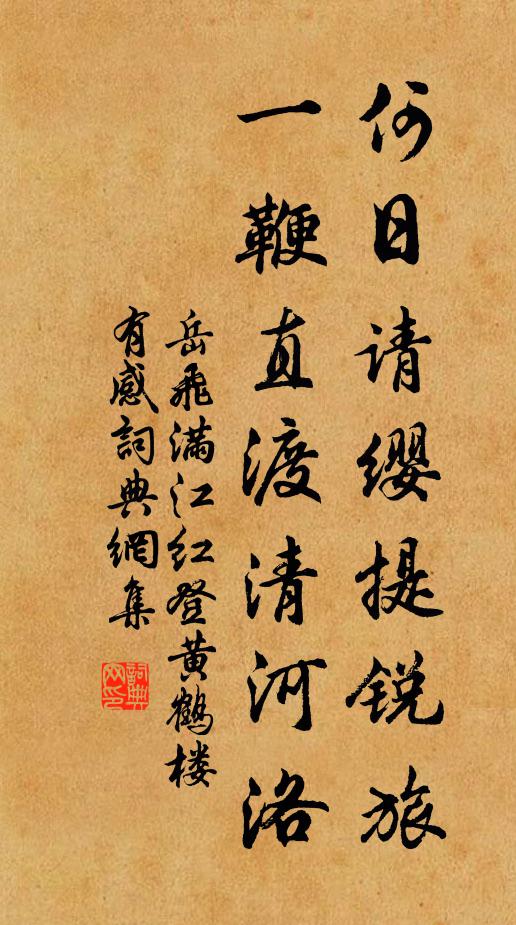 何日请缨提锐旅
一鞭直渡清河洛
岳飞满江红登黄鹤楼
有感詞典網集
詞典
网印